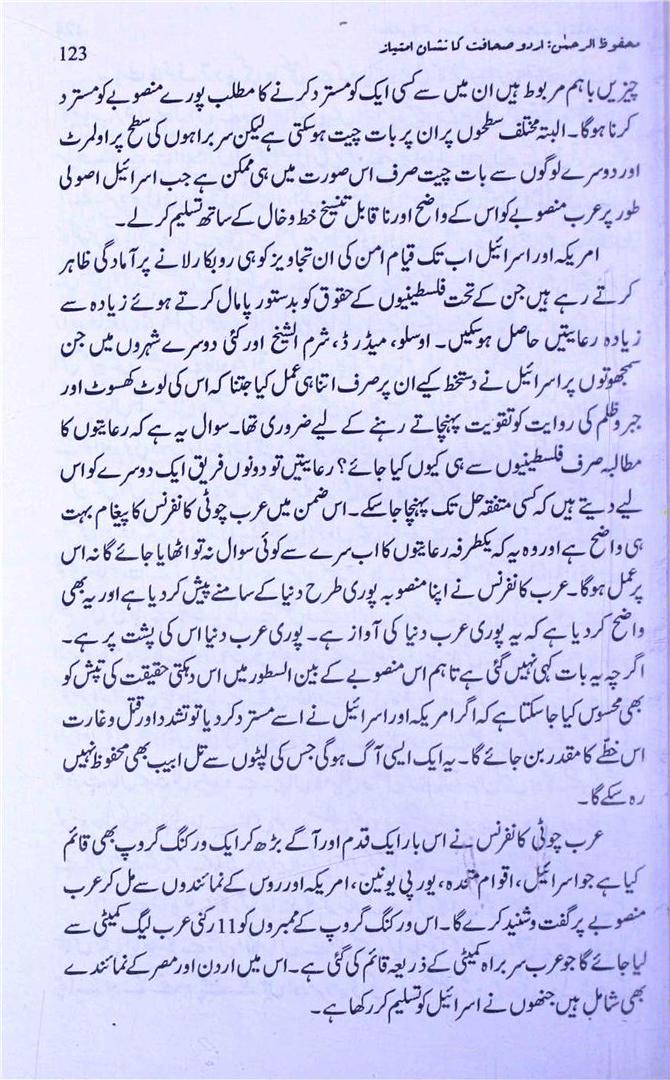 محفوظ الرحمٰن: اردو صحافت کا نشان امتیاز
123
چیزیں باہم مربوط ہیں ان میں سے کسی ایک کو مسترد کرنے کا مطلب پورے منصوبے کو مسترد
کرنا ہوگا۔ البتہ مختلف سطحوں پر ان پر بات چیت ہوسکتی ہے لیکن سربراہوں کی سطح پر اولمرٹ
اور دوسرے لوگوں سے بات چیت صرف اس صورت میں ہی ممکن ہے جب اسرائیل اصولی
طور پر عرب منصوبے کو اس کے واضح اور ناقابل تنسیخ خط و خال کے ساتھ تسلیم کرلے۔
امریکہ اور اسرائیل اب تک قیام امن کی ان تجاویز کو ہی روبکار لانے پر آمادگی ظاہر
کرتے رہے ہیں جن کے تحت فلسطینیوں کے حقوق کو بدستور پامال کرتے ہوئے زیادہ سے
زیادہ رعایتیں حاصل ہوسکیں۔ اوسلو، میڈرڈ، شرم الشیخ اور کئی دوسرے شہروں میں جن
سمجھوتوں پر اسرائیل نے دستخط کیے ان پر صرف اتنا ہی عمل کیا جتنا کہ اس کی لوٹ کھسوٹ اور
جبر و ظلم کی روایت کو تقویت پہنچاتے رہنے کے لیے ضروری تھا۔ سوال یہ ہے کہ رعایتوں کا
مطالبہ صرف فلسطینیوں سے ہی کیوں کیا جائے؟ رعایتیں تو دونوں فریق ایک دوسرے کو اس
لیے دیتے ہیں کہ کسی متفقہ حل تک پہنچا جاسکے۔ اس ضمن میں عرب چوٹی کانفرنس کا پیغام بہت
ہی واضح ہے اور وہ یہ کہ یکطرفہ رعایتوں کا اب سرے سے کوئی سوال نہ تو اٹھایا جائے گا نہ اس
پر عمل ہوگا۔ عرب کانفرنس نے اپنا منصوبہ پوری طرح دنیا کے سامنے پیش کردیا ہے اور یہ بھی
واضح کردیا ہے کہ یہ پوری عرب دنیا کی آواز ہے۔ پوری عرب دنیا اس کی پشت پر ہے۔
اگرچہ یہ بات کہی نہیں گئی ہے تاہم اس منصوبے کے بین السطور میں اس دہکتی حقیقت کی تپش کو
بھی محسوس کیا جاسکتا ہے کہ اگر امریکہ اور اسرائیل نے اسے مسترد کردیا تو تشدد اور قتل و غارت
اس خطّے کا مقدر بن جائے گا۔ یہ ایک ایسی آگ ہوگی جس کی لپٹوں سے تل ابیب بھی محفوظ نہیں
رہ سکے گا۔
عرب چوٹی کانفرنس نے اس بار ایک قدم اور آگے بڑھ کر ایک ورکنگ گروپ بھی قائم
کیا ہے جو اسرائیل، اقوام متحدہ، یورپی یونین، امریکہ اور روس کے نمائندوں سے مل کر عرب
منصوبے پر گفت و شنید کرے گا۔ اس ورکنگ گروپ کے ممبروں کو 11 رکنی عرب لیگ کمیٹی سے
لیا جائے گا جو عرب سربراہ کمیٹی کے ذریعہ قائم کی گئی ہے۔ اس میں اردن اور مصر کے نمائندے
بھی شامل ہیں جنھوں نے اسرائیل کو تسلیم کر رکھا ہے۔